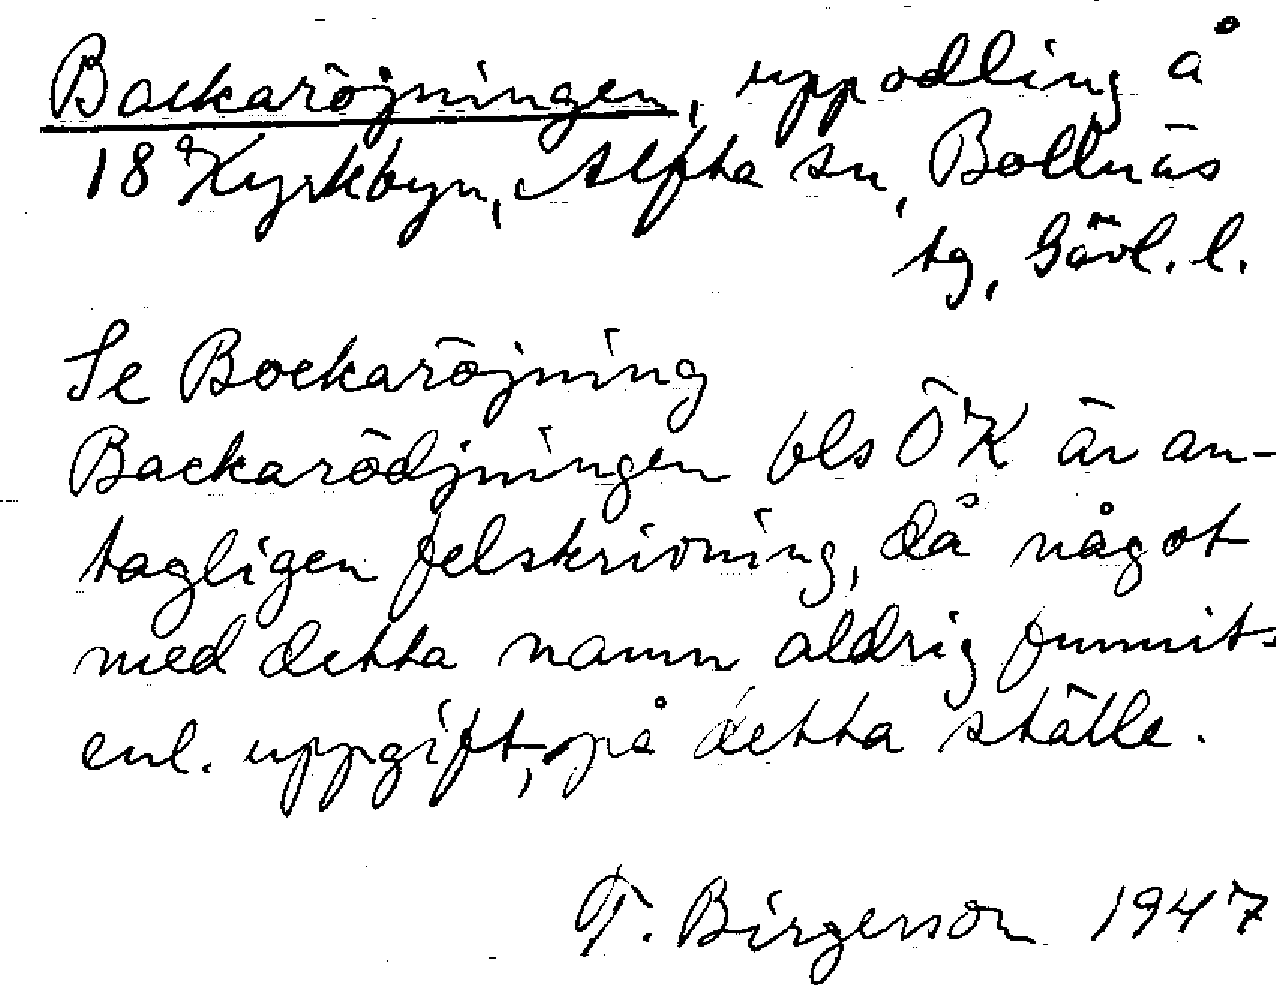 Backaröjningen, uppodling å
18 a Kyrkbyn, Alfta sn, Bollnäs
tg, Gävl. l.
Se Bockaröjning
Backarödjningen bls ÖK är an-
tagligen felskrivning, då något
med detta namn aldrig funnits
enl. uppgift, på detta ställe.
T. Birgerson 1947